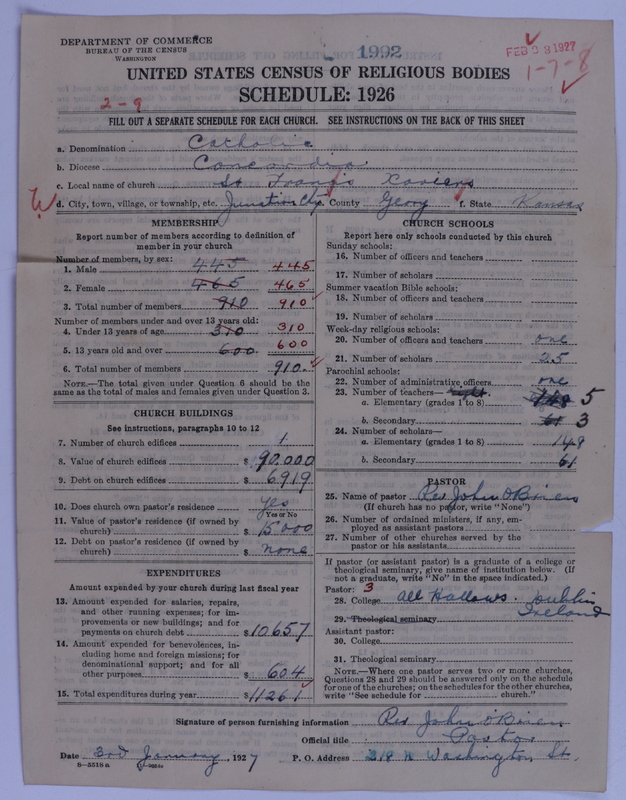 DEPARTMENT OF COMMERCE
BUREAU OF THE CENSUS
WASHINGTON
1992
FEB 23 1927
1-7-8
UNITED STATES CENSUS OF RELIGIOUS BODIES
SCHEDULE: 1926
2-9
FILL OUT A SEPARATE SCHEDULE FOR EACH CHURCH. SEE INSTRUCTIONS ON THE BACK OF THIS SHEET
a. Denomination Catholic
b. Diocese Concordia
c. Local name of church St Francis Xaviers
d. City, town, village, or township, etc. Junction City e. County Geary f. State Kansas
MEMBERSHIP
Report number of members according to definition of member in your church
Number of members, by sex:
1. Male 445 445
2. Female 465 465
3. Total number of members 910 910
Number of members under and over 13 years old:
4. Under 13 years of age 310 310
5. 13 years old and over 600 600
6. Total number of members 910
NOTE.—The total given under Question 6 should be the same as the total of males and females given under Question 3.
CHURCH BUILDINGS
See instructions, paragraphs 10 to 12
7. Number of church edifices 1
8. Value of church edifices $ 90,000
9. Debt on church edifices $ 6919
10. Does church own pastor's residence? yes
Yes or No
11. Value of pastor's residence (if owned by church) $ 15000
12. Debt on pastor's residence (if owned by church) $ none
EXPENDITURES
Amount expended by your church during last fiscal year
13. Amount expended for salaries, repairs, and other running expenses; for improvements or new buildings; and for payments on church debt $ 10657
14. Amount expended for benevolences, including home and foreign missions; for denominational support; and for all other purposes $ 604
15. Total expenditures during year $ 11261
CHURCH SCHOOLS
Report here only schools conducted by this church
Sunday schools:
16. Number of officers and teachers
17. Number of scholars
Summer vacation Bible schools:
18. Number of officers and teachers
19. Number of scholars
Week-day religious schools:
20. Number of officers and teachers one
21. Number of scholars 25
Parochial schools:
22. Number of administrative officers one
23. Number of teachers—
a. Elementary (grades 1 to 8) 148 5
b. Secondary 61 3
24. Number of scholars—
a. Elementary (grades 1 to 8) 148
b. Secondary 61
PASTOR
25. Name of pastor Rev John O'Brien
(If church has no pastor, write "None")
26. Number of ordained ministers, if any, employed as assistant pastors
27. Number of other churches served by the pastor or his assistants
If pastor (or assistant pastor) is a graduate of a college or theological seminary, give name of institution below. (If not a graduate, write "No" in the space indicated.)
Pastor: 3
28. College All Hallows. Dublin Ireland
29. Theological seminary
Assistant pastor:
30. College
31. Theological seminary
NOTE.—Where one pastor serves two or more churches, Questions 28 and 29 should be answered only on the schedule for one of the churches; on the schedules for the other churches, write "See schedule for church."
Signature of person furnishing information Rev John O'Brien
Official title Pastor
Date 3rd January, 1927 P. O. Address 218 N Washington St.
8—5518a